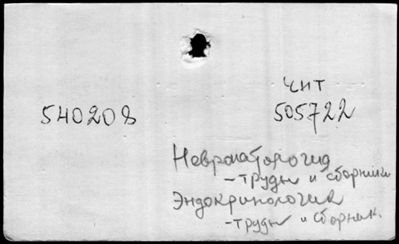 чит
540208 505722
Невропатология
- труды и сборники
Эндокринология
- труды и сборник.